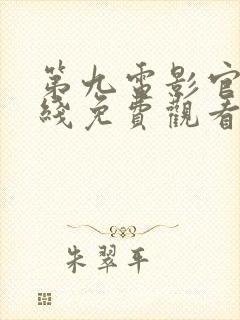 第九雷影官
綫免費觀看
朱翠平